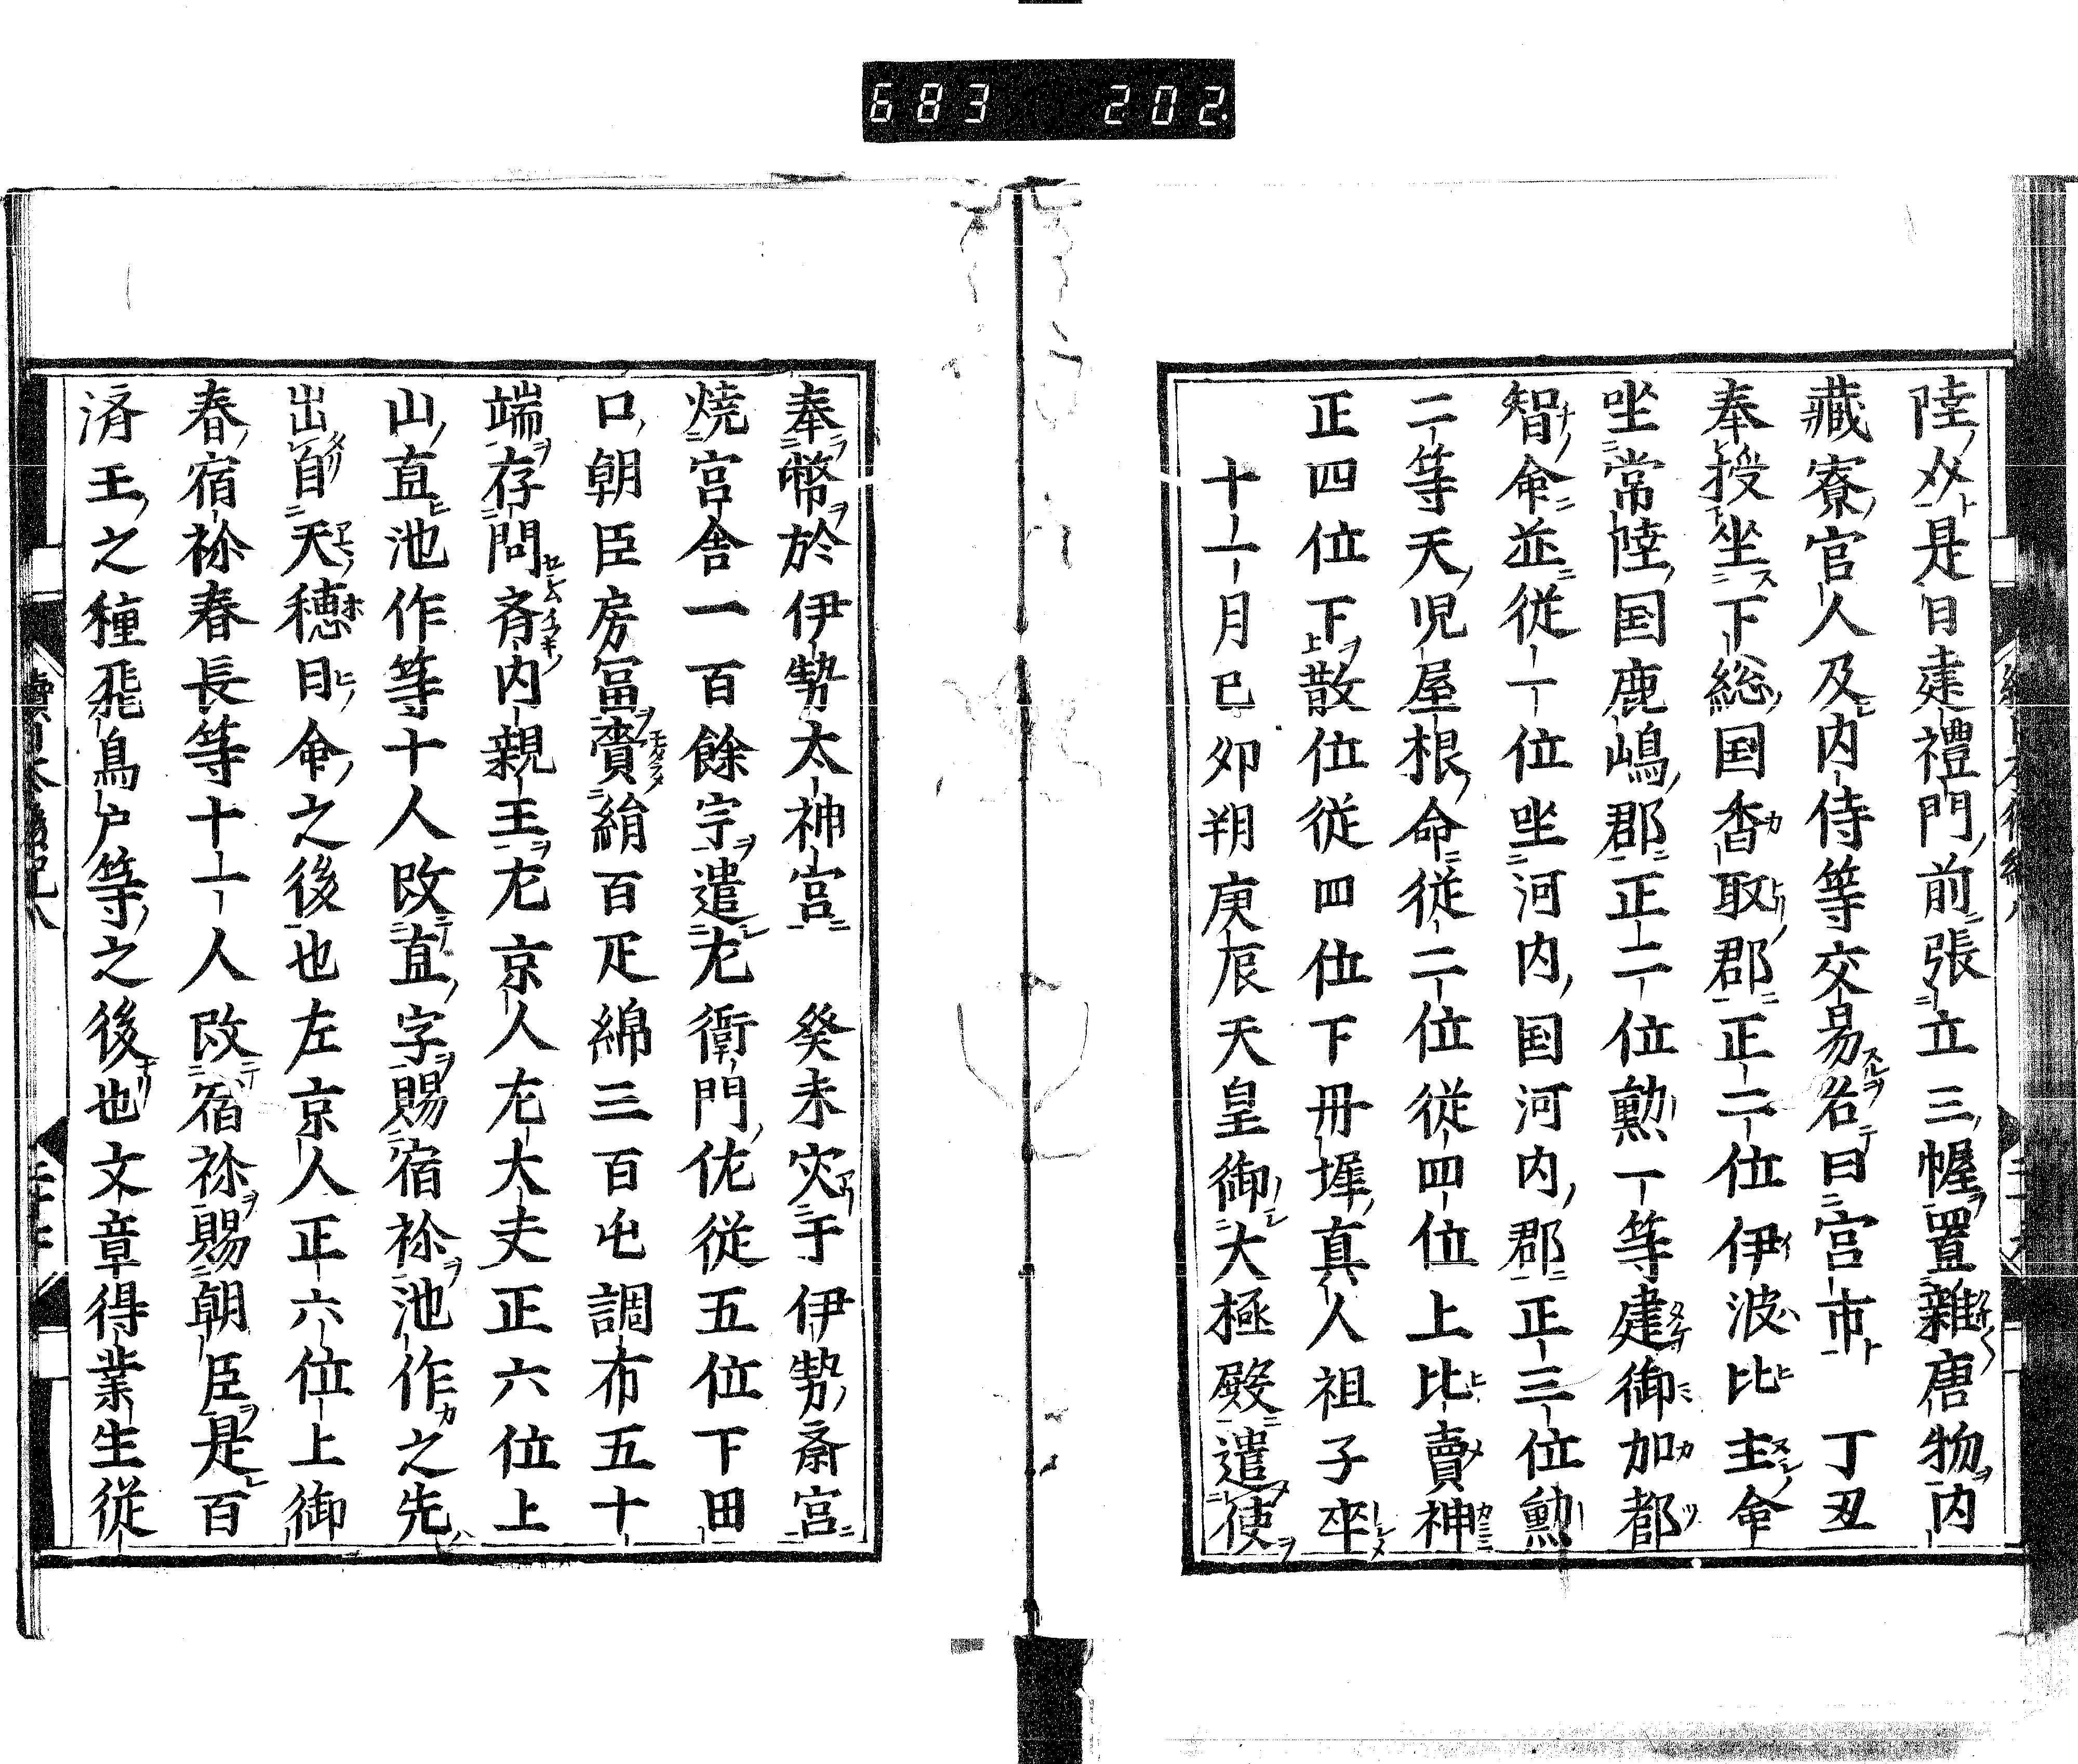 683 202.
陸、㸚是日建禮門前張立三幄置雜唐物内
藏寮官人及内侍等交易名曰宮市 丁丑
奉授坐下総国香取郡正二位伊波比主命
坐常陸国鹿嶋郡正二位勲一等建御加都
智命並従一位坐河内国河内郡正三位勲
二等天児屋根命従二位従四位上比賣神
正四位下散位従四位下丹墀真人祖子卒
十一月已夘朔庚辰天皇御大極殿遣使
奉幣於伊勢太神宮 癸未灾于伊勢斎宮
焼宮舎一百餘宇遣左衛門佐従五位下田
口朝臣房冨賚絹百疋綿三百屯調布五十
端存問斉内親王左京人左大史正六位上
山直池作等十人改直字賜宿祢池作之先
出自天穂日命之後也左京人正六位上御
春宿祢春長等十一人改宿祢賜朝臣是百
済王之種飛鳥戸等之後也文章得業生従